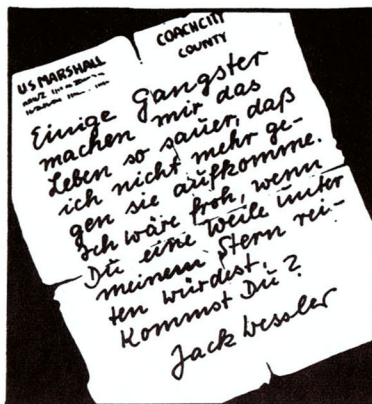 U.S. MARSHALL
COACHCITY
COUNTY
Einige Gangster
machen mir das
Leben so sauer, daß
ich nicht mehr ge-
gen sie aufkomme.
Ich wäre froh, wenn
Du eine Weile unter
meinem Stern rei-
ten würdest.
Kommst Du?
Jack Wessler